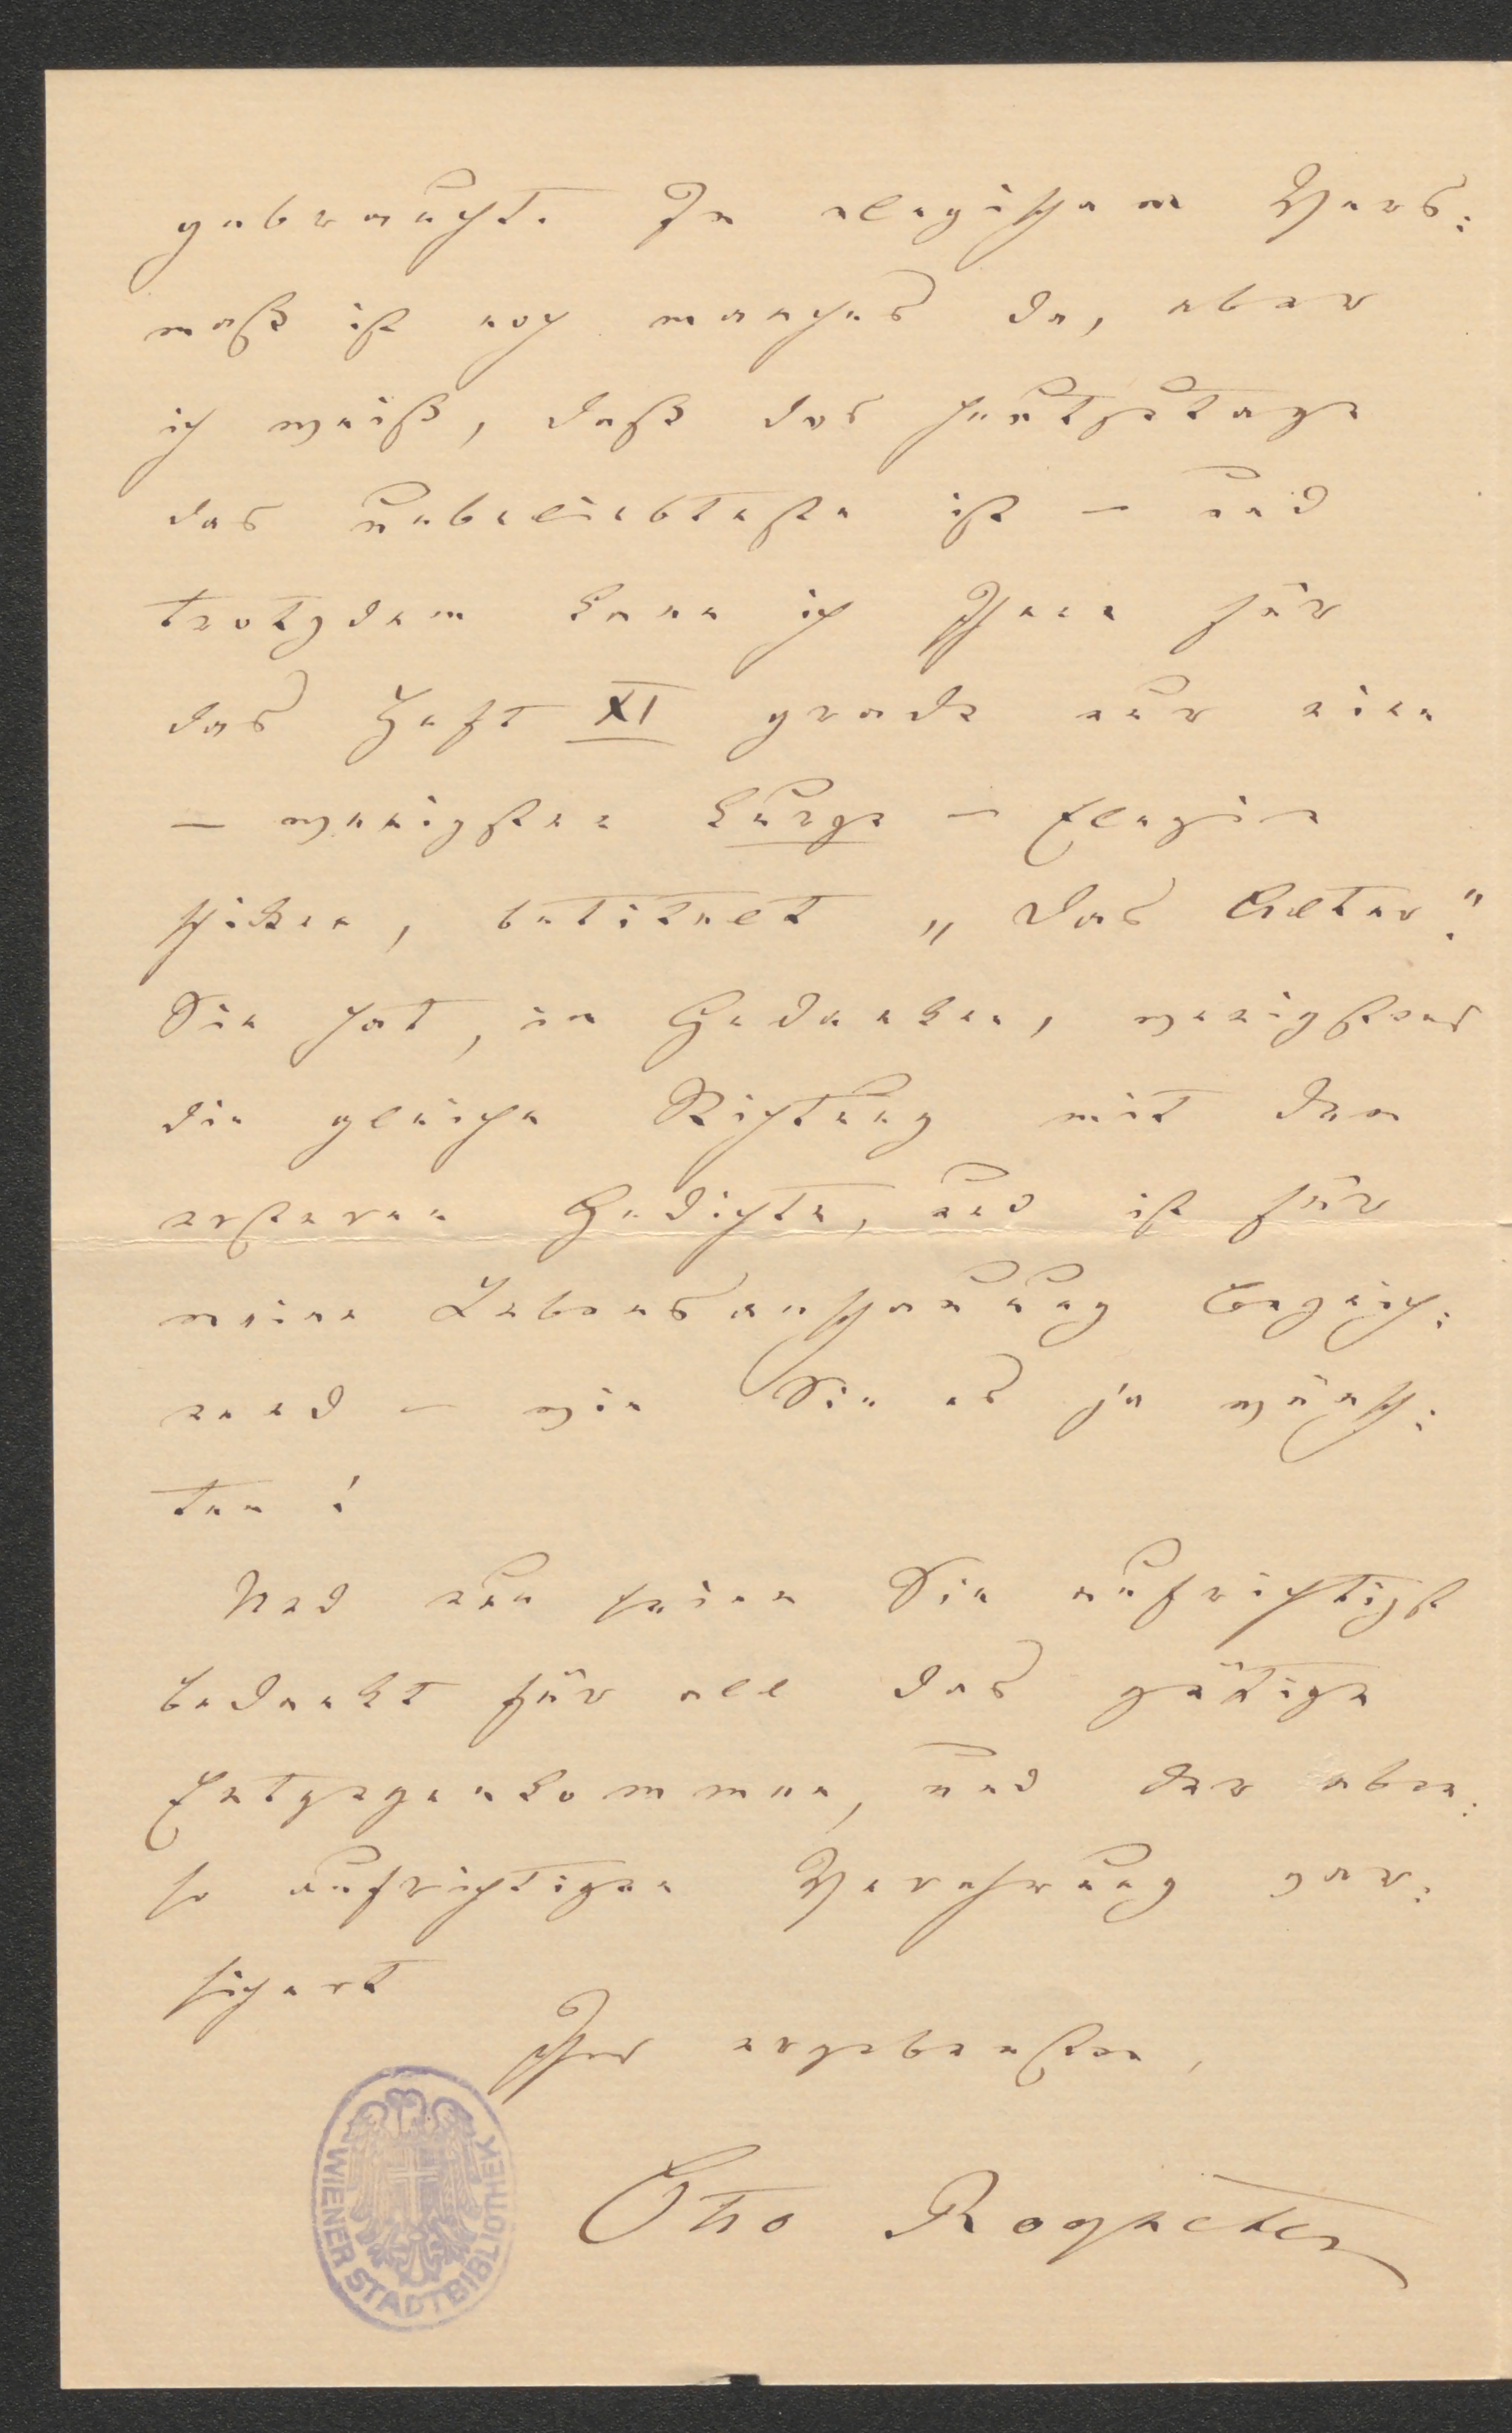 gebraucht. In elegischem Vers:
maß ist noch manches da, aber
ich weiß, daß das heutzutage
das unbeliebteste ist – und
trotzdem kann ich Ihnen für
das Heft XI grade nur eine
– wenigstens kurze – Elegie
schicken, betitelt „Das Alter".
Sie hat, in Gedanken, wenigstens
die gleiche Richtung mit dem
ersteren Gedichte, und ist für
meine Lebensanschauung bezeich:
nend – wie Sie es ja wünsch:
ten!
Und nun seien Sie aufrichtigst
bedankt für all das gütige
Entgegenkommen, und der eben:
so aufrichtigen Verehrung ver:
sichert
Ihres ergebensten,
Otto Roquette
WIENER STADTBIBLIOTHEK